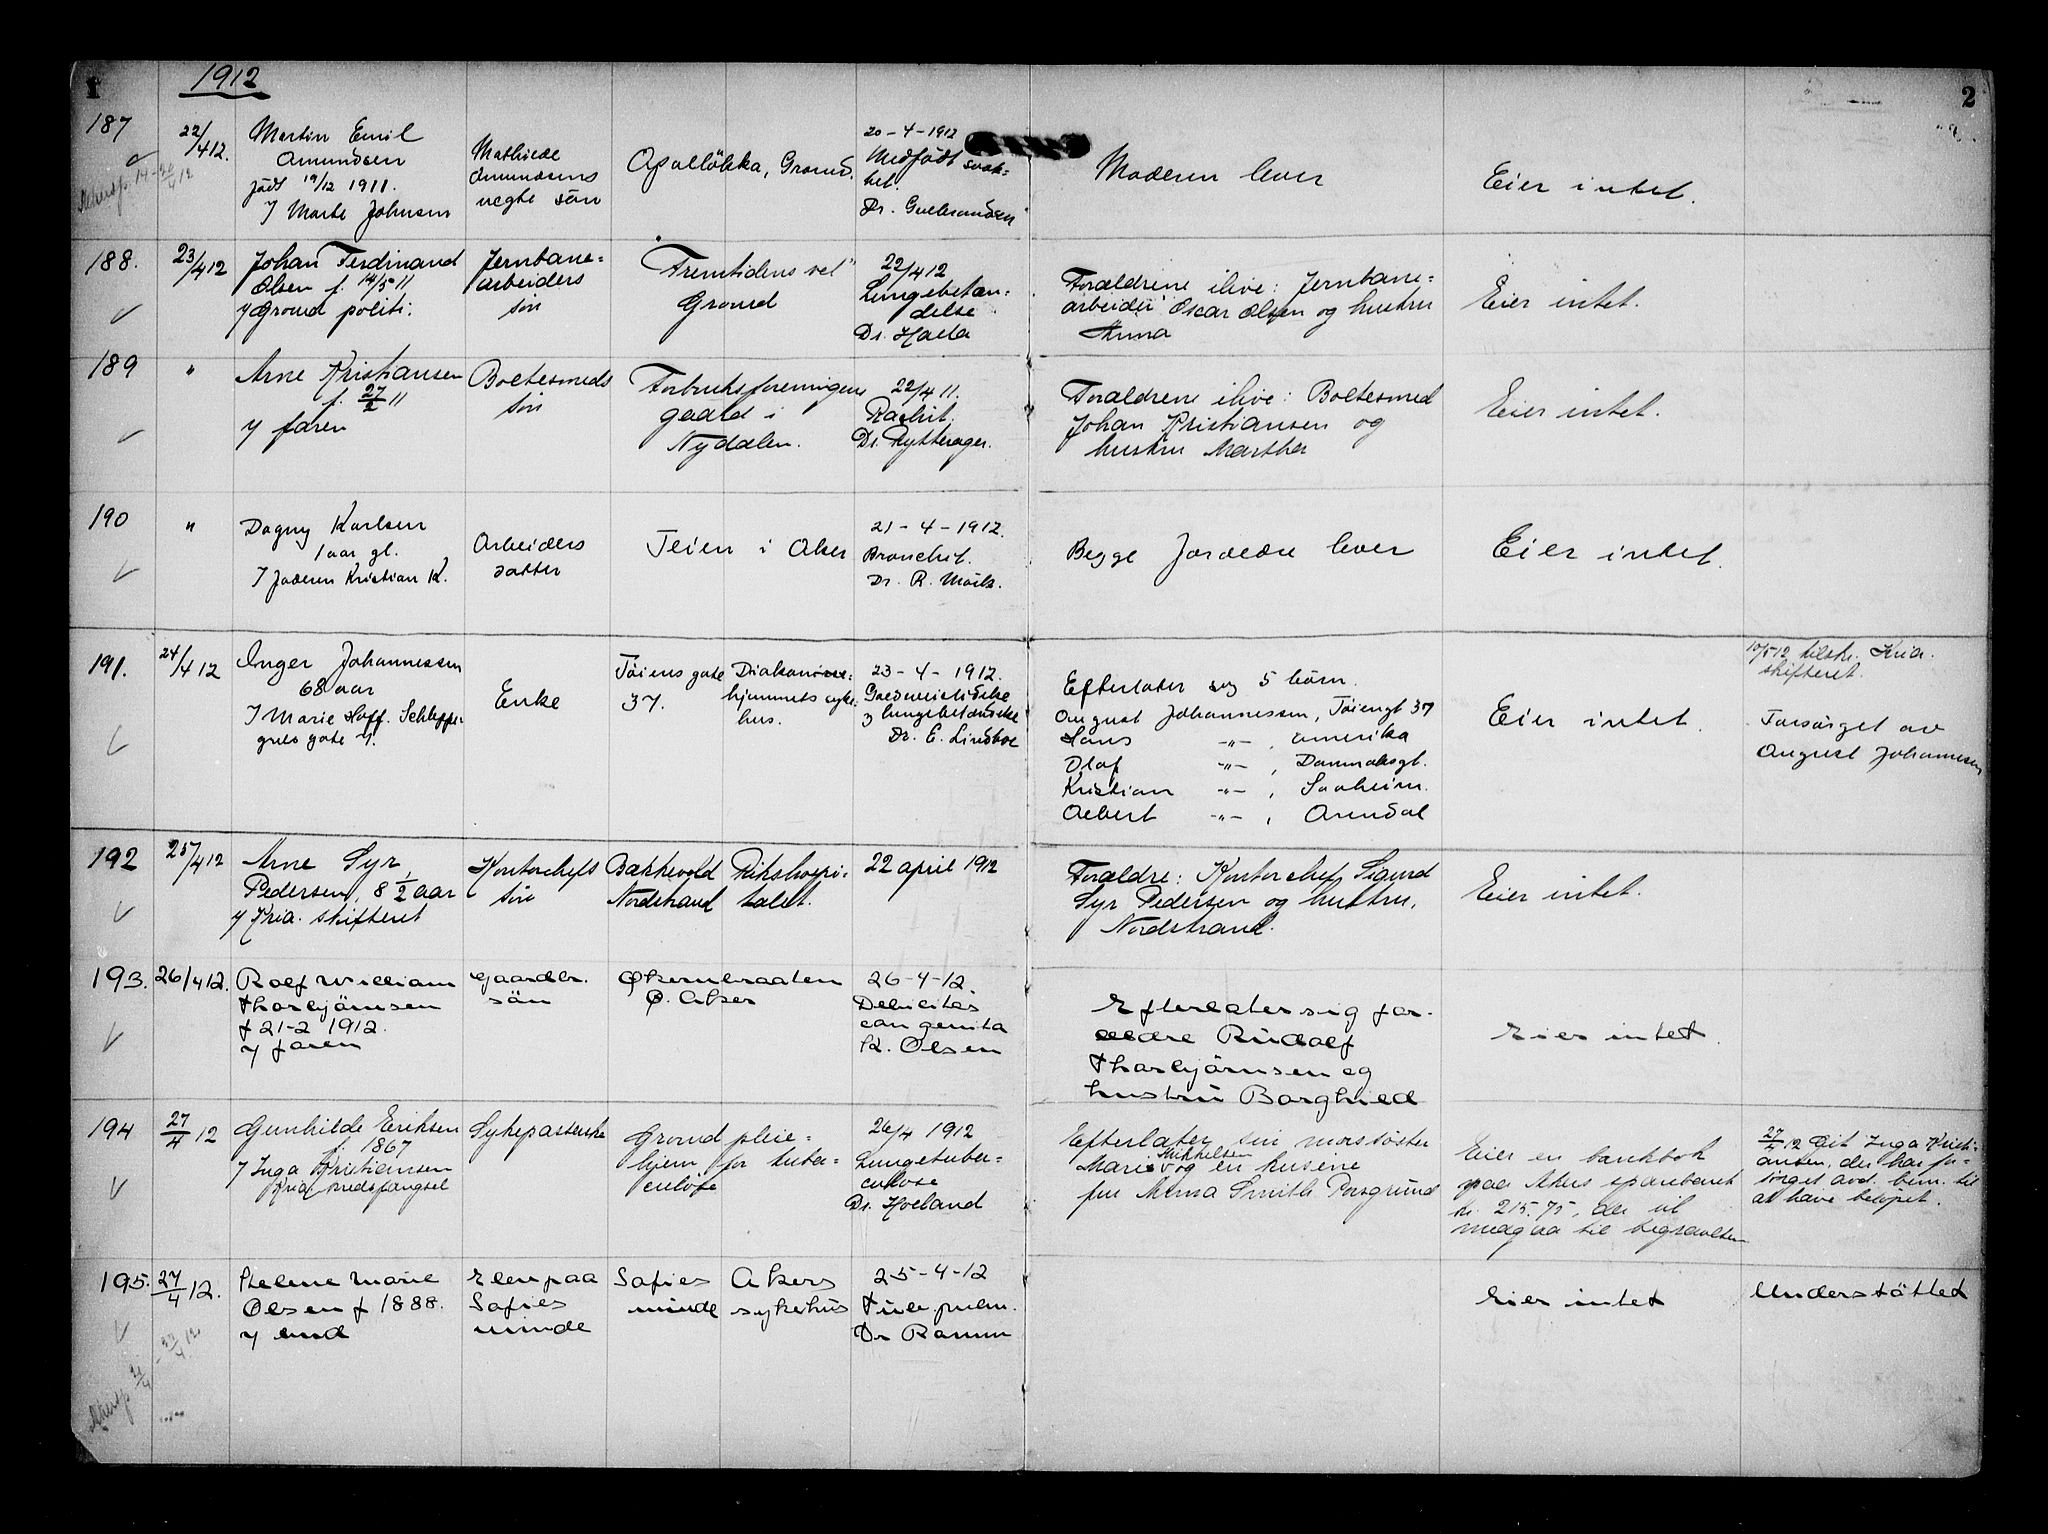 1
1912
2
187
22/4 12.
Martin Emil
Amundsen
født 19/12 1911.
Marte Johnsen
Mathilde
Amundsens
uegte sön
Apalløkka, Grorud.
20-4-1912
Medfödt svak-
het.
Dr. Gulbrandsen
Moderen lever
Eier intet.
188.
23/4 12
Johan Ferdinand
Olsen f. 14/5 11
Grorud politi.
Jernbane=
arbeiders
sön
"Fremtidens vel"
Grorud
22/4 12
Lungebetæn=
delse
Dr.
Forældrene ilive: Jernbane=
arbeider Oscar Olsen og hustru
Anna
Eier intet.
189
"
Arne Kristiansen
f. 27/2 11
faren
Boltesmeds
sön
Forbruksforeningens
gaard i
Nydalen.
22/4 11.
Rachit.
Dr. Rytterager.
Forældrene ilive: Boltesmed
Johan Kristiansen og
hustru Martha
Eier intet.
190
"
Dagny Karlsen
1 aar gl.
Faderen Kristian K.
Arbeiders
datter
Teien i Aker
21-4-1912.
Bronchit.
Dr. R. Mork.
Begge forældre lever
Eier intet.
191.
24/4 12
Inger Johannessen
68 aar
Marie Hoff. Schleppe-
grels gate 7.
Enke
Töiens gate
37.
Diakonisse-
hjemmets syke-
hus.
23-4-1912.
lungebetændelse
Dr. E. Lindboe
Efterlater sig 5 börn.
August Johannessen, Töiengt 37
Hans -"-, Amerika
Olaf -"-, Danmarksgt.
Kristian -"-, Saaheim.
Albert -"-, Arendal
Eier intet.
10/5 12 tilskr. Kria.
skifteret.
Forsörget av
August Johannessen
192
25/4 12
Arne Syr
Pedersen, 8 1/2 aar
Kria. skifteret
Kontorchefs
sön
Bækkevold
Nordstrand
Rikshospi-
talet.
22 april 1912
Forældre: Kontorchef Sigurd
Syr Pedersen og hustru,
Nordstrand.
Eier intet.
193.
26/4 12.
Rolf William
Thorbjörnsen
f 21-2 1912.
faren
Gaardbr.
sön
Økernbraaten
Ø. Aker
26-4-12.
Debilitas
congenita
K. Olsen
Efterlater sig for-
ældre Rudolf
Thorbjörnsen og
hustru Borghild
Eier intet.
194
27/4 12
Gunhilde Eriksen
f. 1867
Inga Kristiansen
Kria Kredsfængsel
Sykepasserske
Grorud pleie-
hjem for tuber-
culöse
26/4 1912
Lungetuber-
culose
Dr. Hovland
Efterlater sin morsöster
Marie Mikkelsen og en kusine
fru Anna Smith Porsgrund
Eier en bankbok
paa Akers sparebank
kr. 215.75, der vil
medgaa til begravelsen
27/4 12 Git Inga Kristi-
ansen, der har for-
sörget avd. bem. til
at hæve belöpet.
195.
27/4 12.
Helene Marie
Olsen f 1888.
Elev paa
Sofies
minde
Sofies
minde
Akers
sykehus
25-4-12
Dr Ramm
Eier intet
Understöttet